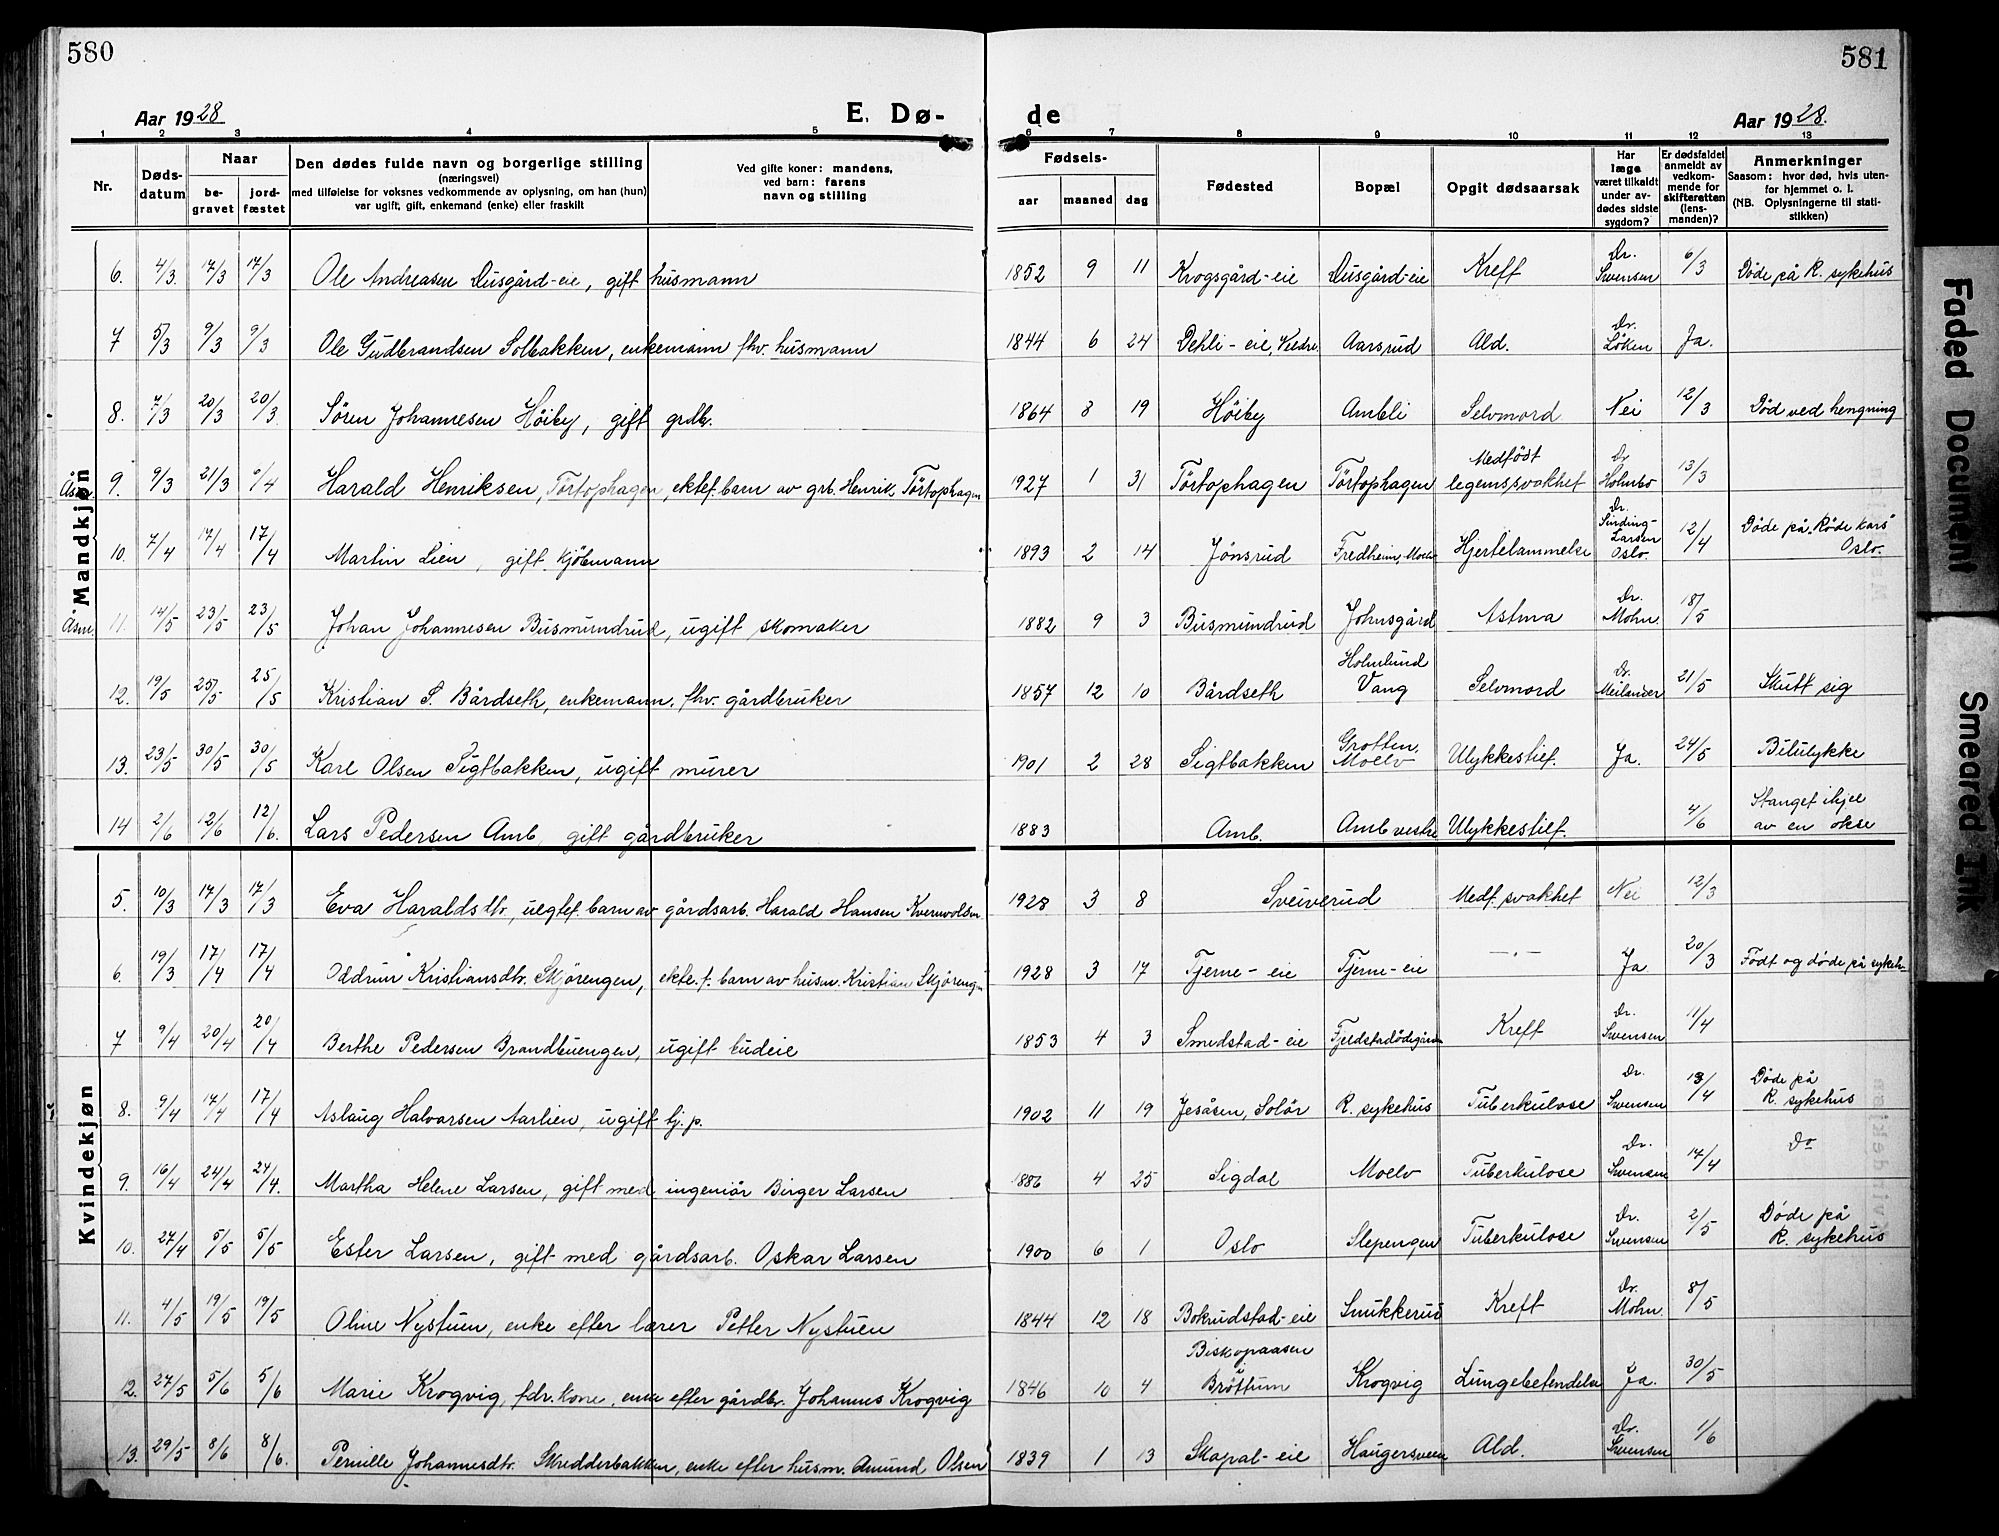 580
581
Aar 1928
E. Dø-
de
Aar 1928.
1 2 3 4 5 6 7 8 9 10 11 12 13
Nr.
Døds-
datum
Naar
be-
gravet
jord-
fæstet
Den dødes fulde navn og borgerlige stilling
(næringsvei)
med tilføielse for voksnes vedkommende av oplysning, om han (hun)
var ugift, gift, enkemand (enke) eller fraskilt
Ved gifte koner: mandens,
ved barn: farens
navn og stilling
Fødsels-
aar maaned dag
Fødested
Bopæl
Opgit dødsaarsak
Har
læge
været tilkaldt
under av-
dødes sidste
sygdom?
Er dødsfaldet
anmeldt av
vedkom-
mende for
skifteretten
(lens-
manden)?
Anmerkninger
Saasom: hvor død, hvis uten-
for hjemmet o. l.
(NB. Oplysningerne til stati-
stikken)
Mandkjøn
6. 4/3. 17/3 17/3 Ole Andreasen Dusgård-eie, gift husmann 1852 9 11 Krogsgård-eie Dusgård-eie Kreft Dr. Swensen 6/3 Døde på R. sykehus
7 5/3 9/3 9/3 Ole Gudbrandsen Solbakken, enkemann fhv. husmann 1844 6 24 Dehli-eie, Veldre. Aarsrud Ald. Dr. Løken Ja.
8. 7/3 20/3 20/3. Sören Johannesen Höiby, gift grdbr. 1864 8 19 Höiby Ambli Selvmord Nei 12/3 Död ved hengning
Åsm. 9. 9/3 21/3 6/4 Harald Henriksen, Törtophagen, ektef. barn av grb. Henrik Törtophagen 1927 1 31 Törtophagen Törtophagen Medfödt legemssvakhet Dr Holmbo 13/3
10. 7/4 17/4 17/4 Martin Lien, gift kjöbmann 1893 2 14 Jönsrud Fredheim, Moelv Hjertelammelse Dr. Sinding-Larsen Oslo. 12/4 Döde på "Röde Kors" Oslo.
Åsm. 11. 14/5 23/5 23/5 Johan Johannesen Busmundrud, ugift skomaker 1882 9 3 Busmundrud Johnsgård Astma Dr. Mohn. 18/5
12. 19/5 25/5 25/5 Kristian S. Bårdseth, enkemann, fhv. gårdbruker 1857 12 10 Bårdseth Holmlund Vang Selvmord Dr. Meilander 21/5 Skutt sig
13. 23/5 30/5 30/5 Karl Olsen Sigtbakken, ugift murer 1901 2 28 Sigtbakken Grotten, Moelv Ulykkestilf. Ja. 24/5 Bilulykke
14 2/6 12/6 12/6. Lars Pedersen Amb, gift gårdbruker 1883 Amb. Amb vestre Ulykkestilf. 4/6 Stanget ihjel av en okse
Kvindekjøn
5. 10/3 17/3 17/3 Eva Haraldsdtr, uegtef. barn av gårdsarb. Harald Hansen Kvernvolsm 1928 3 8 Sveiverud Medf. svakhet Nei 12/3
6. 19/3 17/4 17/4 Oddrun Kristiansdtr. Skjörengen, ekte.f. barn av husm. Kristian Skjörengn 1928 3 17 Tjerne-eie Tjerne-eie -"- Ja 20/3 Födt og döde på sykeh.
7 9/4 20/4 20/4 Berthe Pedersen Brandbuengen, ugift budeie 1853 4 3 Smedstad-eie Fjeldstadödegården Kreft Dr. Swensen 11/4
8. 9/4 17/4 17/4 Aslaug Halvorsen Aarlien, ugift tj. p. 1902 11 19 Jesåsen, Solör R. sykehus Tuberkulose Dr. Swensen 13/4 Döde på R. sykehus
9. 16/4 24/4 24/4. Martha Helene Larsen, gift med ingeniör Birger Larsen 1886 4 25 Sigdal Moelv Tuberkulose Dr. Swensen 17/4 Do
10. 27/4 5/5 5/5 Ester Larsen, gift med gårdsarb. Oskar Larsen 1900 6 1 Oslo Slepengen Tuberkulose Dr. Swensen 2/5 Döde på R. sykehus
11. 4/5 19/5 19/5 Oline Nystuen, enke efter lærer Petter Nystuen 1844 12 18 Bokrudstad-eie Snukkerud Kreft Dr. Mohn. 8/5
12. 27/5 5/6 5/6 Marie Krogvig, fdr. kone, enke efter gårdbr. Johannes Krogvig 1846 10 4 Biskopaasen i Bröttum Krogvig Lungebetendelse Ja. 30/5
13. 29/5 8/6 8/6. Pernille Johannesdtr. Skredderbakken, enke efter husm. Amund Olsen 1839 1 13 Skapal-eie Haugersveen Ald. Dr. Swensen 1/6
Faded Document
Smeared Ink